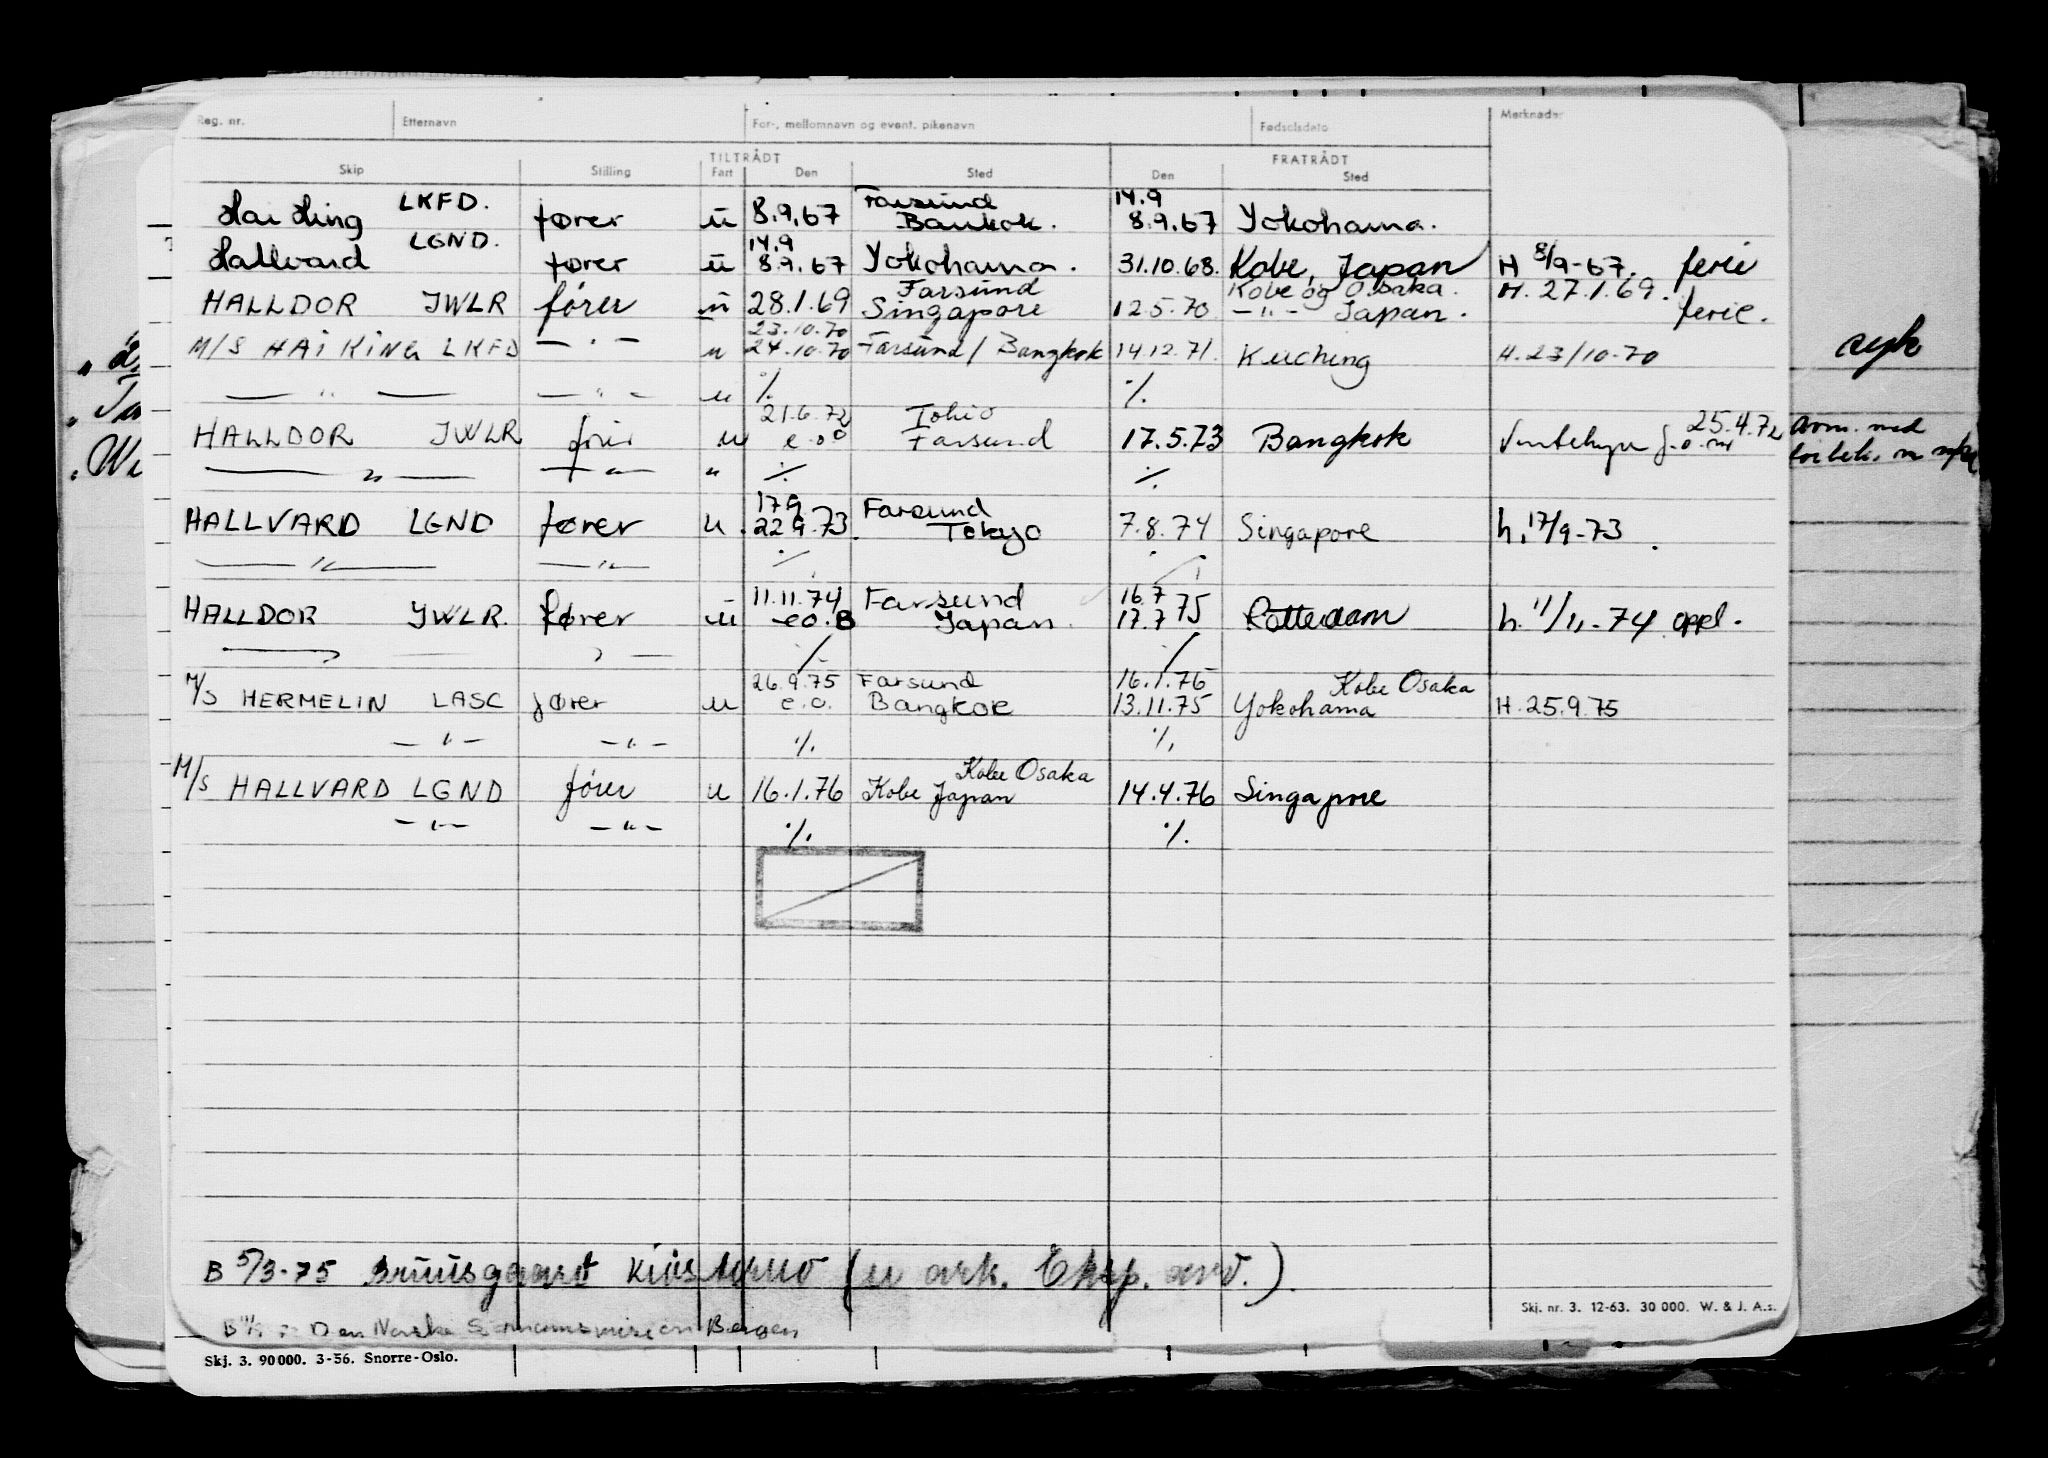 Reg. nr. Etternavn For-, mellomnavn og event. pikenavn Fødselsdato Merknader
TILTRÅDT FRATRÅDT
Skip Stilling Fart Den Sted Den Sted
LKFD. Farsund 14.9
Hai Hing fører u 8.9.67 Bankok. 8.9.67 Yokohama.
LGND. 14.9
Hallvard fører u 8.9.67 Yokohama. 31.10.68. Kobe, Japan H 8/9-67. ferie
Farsund Kobe og Osaka. H. 27.1.69.
HALLDOR JWLR fører u 28.1.69 Singapore 12.5.70 -"- Japan. ferie.
23.10.70
M/S HAI KING LKFD - " - u 24.10.70 Farsund / Bangkok 14.12.71. Kuching H. 23/10-70
— " — — " — u % %
21.6.72 Tokio 25.4.72
HALLDOR JWLR fører u e.o. Farsund 17.5.73 Bangkok
— " — — " — " % %
17.9 Farsund
HALLVARD LGND fører u. 22.9.73. Tokyo 7.8.74 Singapore h. 17/9-73.
— " — — " — %
11.11.74 Farsund 16.7
HALLDOR JWLR. fører u e.o. B Japan. 17.7 75 Rotterdam h. 11/11-74 oppl.
% %
26.9.75 Farsund 16.1.76 Kobe Osaka
M/S HERMELIN LASC fører u e.o. Bangkok 13.11.75 Yokohama H. 25.9.75
— " — — " — % %
Kobe Osaka
M/S HALLVARD LGND fører u 16.1.76 Kobe Japan 14.4.76 Singapore
— " — — " — % %
B 5/3-75 Bruusgaard Kiøsterud (u ark.
Skj. nr. 3. 12-63. 30 000. W. & J. A.s.
Den Norske Bergen
Skj. 3. 90000. 3-56. Snorre-Oslo.